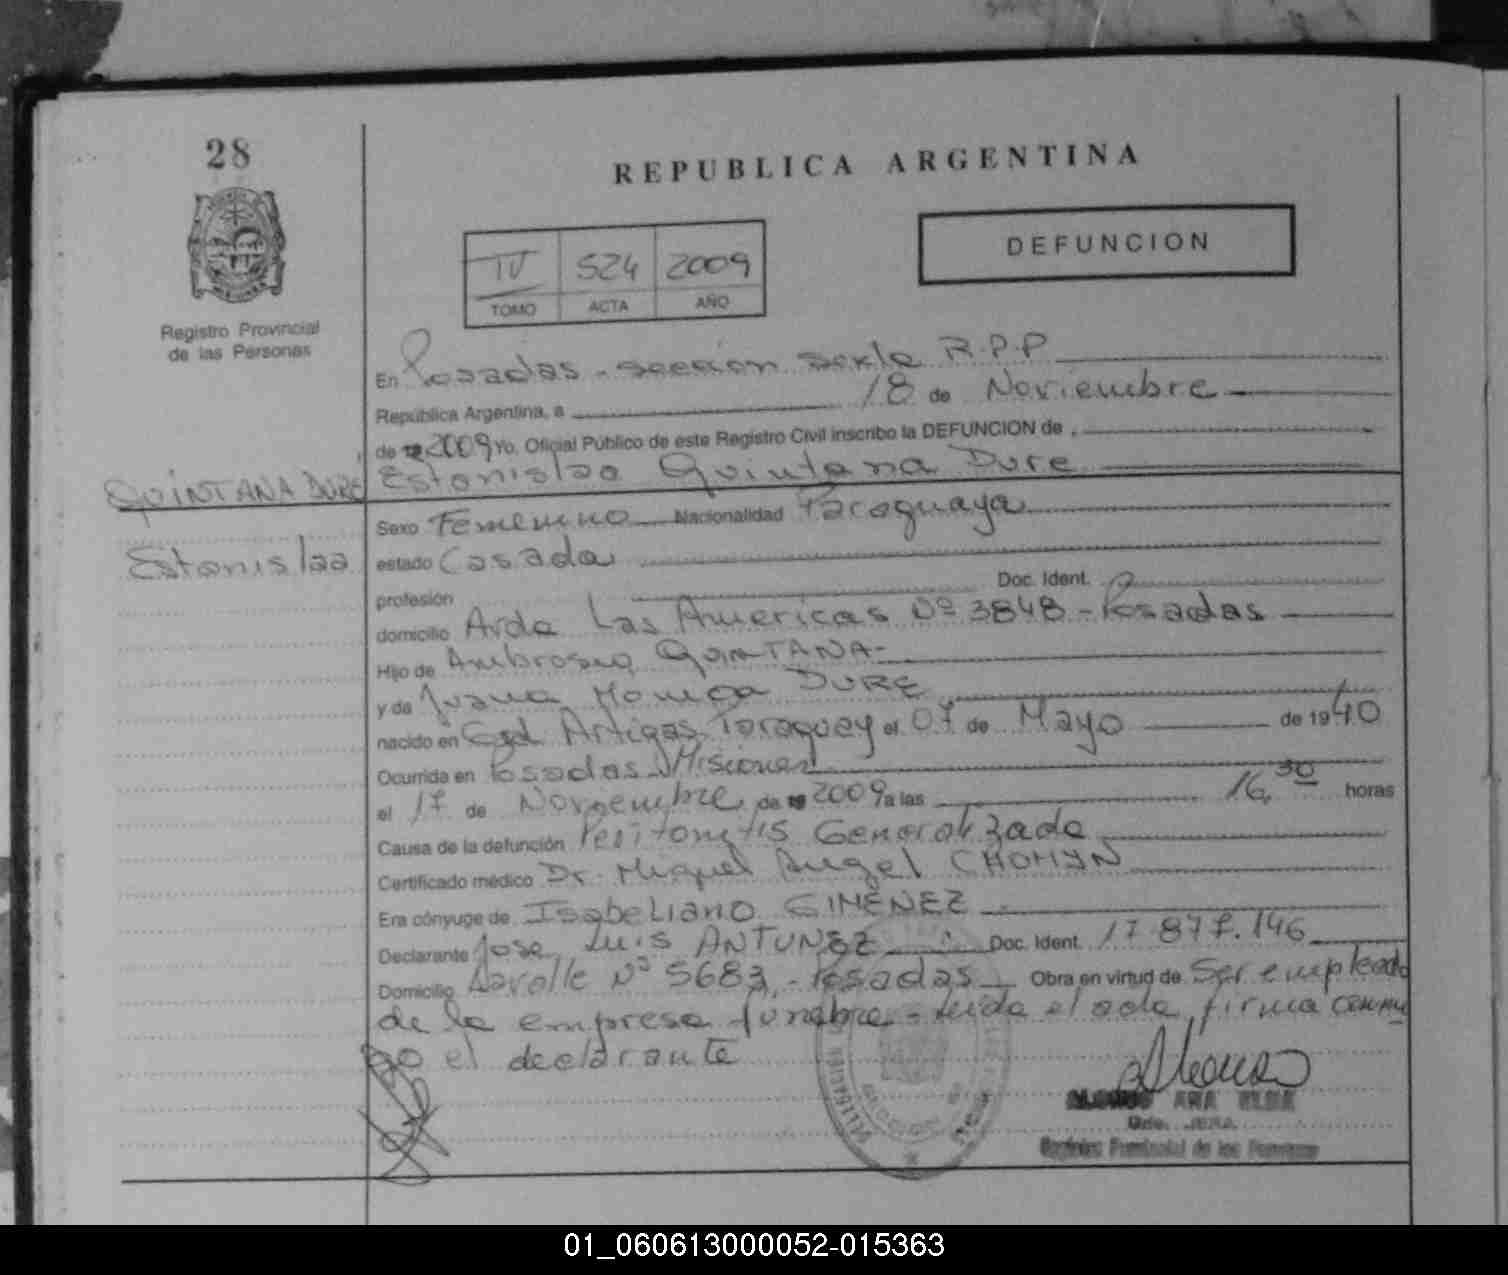 28
REPUBLICA ARGENTINA
Registro Provincial
de las Personas
IV 524 2009
TOMO ACTA AÑO
DEFUNCION
En Posadas - seccion sexta R.P.P
República Argentina, a 18 de Noviembre
de 2009 Yo, Oficial Público de este Registro Civil inscribo la DEFUNCION de
QUINTANA DURE Estanislaa Quintana Dure
Estanislaa
Sexo Femenino Nacionalidad Paraguaya
estado Casada
profesión Doc. Ident.
domicilio Avda Las Americas Nº 3848 - Posadas
Hijo de Ambrosio QUINTANA-
y de Juana Monica DURE
nacido en Gral Artigas Paraguay el 07 de Mayo de 1940
Ocurrida en Posadas Misiones
el 17 de Noviembre de 2009 a las 16,30 horas
Causa de la defunción Peritonitis Generalizada
Certificado médico Dr. Miguel Angel CHOMYN
Era cónyuge de Isabeliano GIMENEZ
Declarante Jose Luis ANTUNEZ Doc. Ident. 17.877.146
Domicilio Nº 5683 - Posadas Obra en virtud de Ser empleado
de la empresa funebre - leida el acta, firma conmi
go el declarante
ALONSO ANA ELSA
Registro Provincial de las Personas
01_060613000052-015363